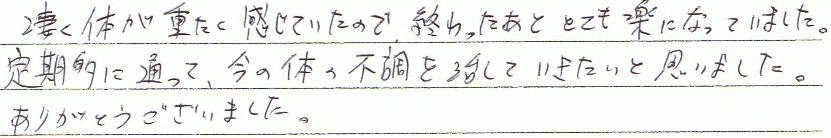 凄く体が重たく感じていたので、終わったあととても楽になっていました。
定期的に通って、今の体の不調を治していきたいと思いました。
ありがとうございました。